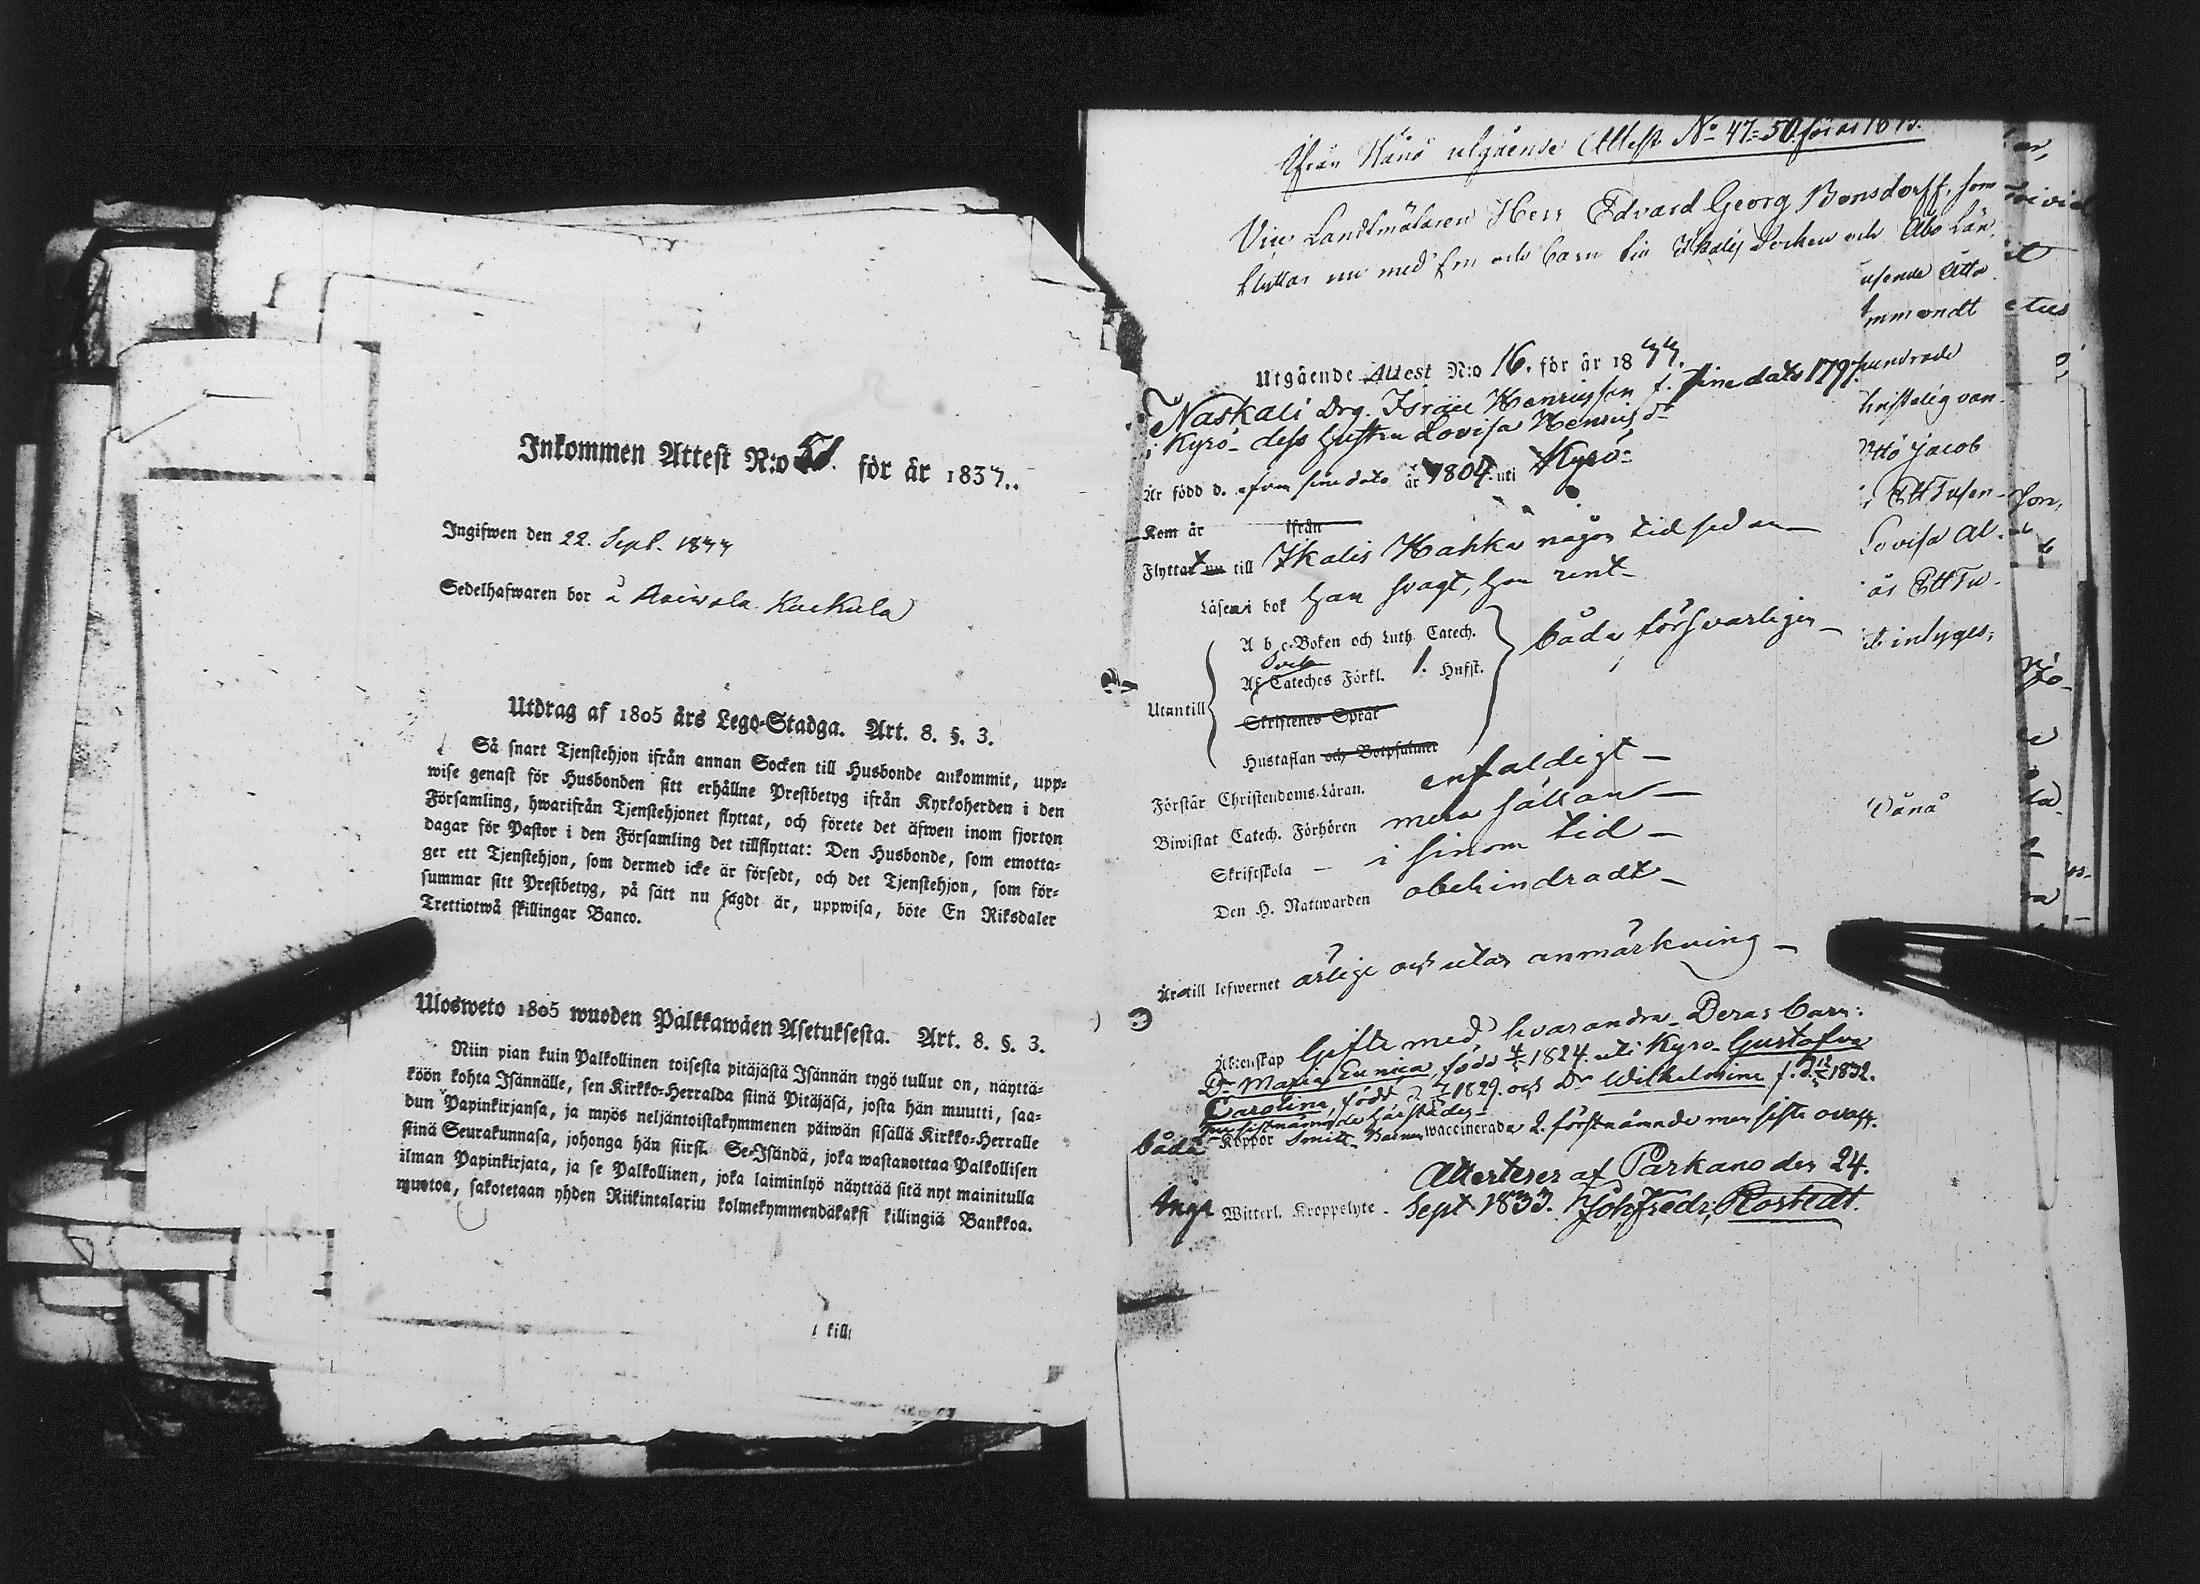 Inkommen Attest N:o 51. för år 1833..
Ingifwen den 22. Sept. 1833
Sedelhafwaren bor å
Utdrag af 1805 års Lego-Stadga. Art. 8. §. 3.
Så snart Tjenstehjon ifrån annan Socken till Husbonde ankommit, upp-
wise genast för Husbonden sitt erhållne Prestbetyg ifrån Kyrkoherden i den
Församling, hwarifrån Tjenstehjonet flyttat, och förete det äfwen inom fjorton
dagar för Pastor i den Församling det tillflyttat: Den Husbonde, som emotta-
ger ett Tjenstehjon, som dermed icke är försedt, och det Tjenstehjon, som för-
summar sitt Prestbetyg, på sätt nu sagdt är, uppwisa, böte En Riksdaler
Trettiotwå skillingar Banco.
Ulosweto 1805 wuoden Palkkawäen Asetuksesta. Art. 8. §. 3.
Niin pian kuin Palkollinen toisesta pitäjästä Isännän tygö tullut on, näyttä-
köön kohta Isännälle, sen Kirkko-Herralda siinä Pitäjäsä, josta hän muutti, saa-
dun Papinkirjansa, ja myös neljäntoistakymmenen päiwän sisällä Kirkko-Herralle
siinä Seurakunnasa, johonga hän siirsi. Se Isändä, joka wastanottaa Palkollisen
ilman Papinkirjata, ja se Palkollinen, joka laiminlyö näyttää sitä nyt mainitulla
muotoa, sakotetaan yhden Riikintalarin kolmekymmendäkaksi killingiä Bankkoa.
killi
Ifrån Wånå utgående Attest No 47=50 för år 18
Vice Landtmätaren Herr Edvard Georg Bonsdorff, som
flyttar nu med fru och barn till Ikalis Socken och Åbo Län,
Utgående Attest N:o 16. för år 1833.
Naskali Drg. Israel Henriksson f. sine dato 1797
i Kyrö- dess hustru Lovisa Henriksdr
Är född d. äfven sine dato år 1804. uti Kyrö-
Kom år ifrån
Flyttat nu till Ikalis Hahka någon tid sedan
Läser i bok han svagt, hon rent-
A b c-Boken och Luth. Catech. båda försvarligen-
Af Cateches Förkl. 1. Hufst.
Utantill
Skriftenes Språk
Hustaflan och Botpsalmer
Förstår Christendoms-Läran. enfaldigt-
Biwistat Catech. Förhören mera sällan-
Skriftskola - i sinom tid-
Den H. Nattwarden obehindradt-
Är till lefwernet ärlige och utan anmärkning-
Äktenskap Gifte med hvarandra- Deras barn:
Dr Maria Eunica, född 1824. uti Kyrö- Gustafva
Carolina, född 1829. och Dr Wilhelmina f. d. 1832.
båda Koppor vaccinerade 2. förstnämnde men sista ovacc.
Attesteras af Parkano den 24.
Inga Witterl. Kroppslyte- Sept 1833. Joh Fredr, Rostedt.
mmendt
hundrade
Otto Jacob
Ett Tusen-
Lovisa Al-
år Ett Tu-
intyges;
Wånå